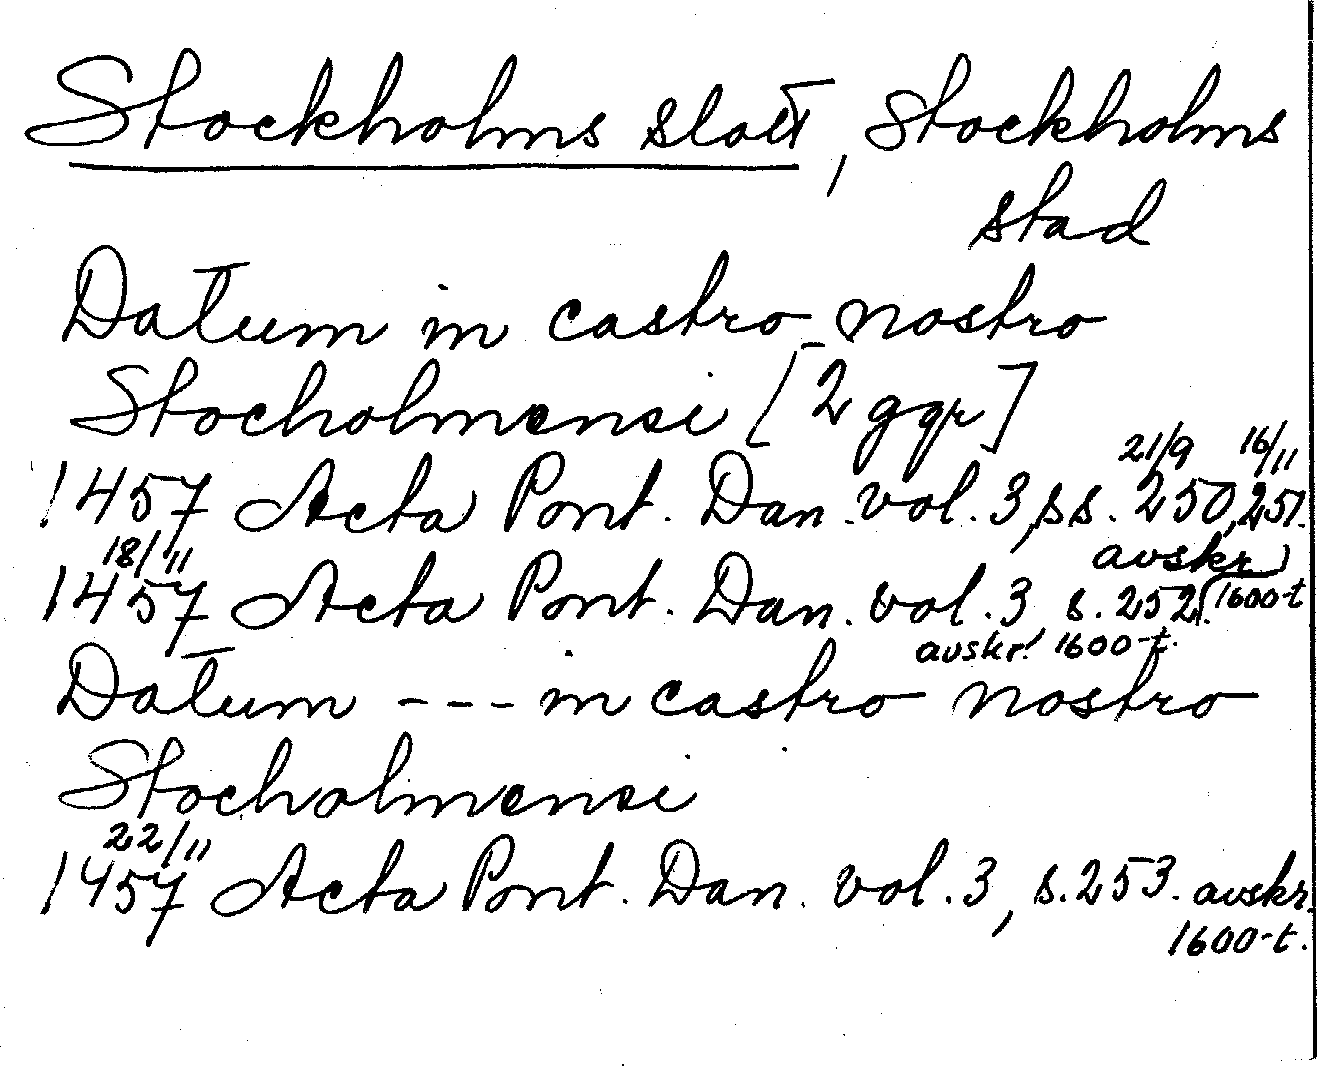 Stockholms slott, Stockholms
stad
Datum in castro nostro
Stocholmensi [2 ggr]
21/9 16/11
1457 Acta Pont. Dan. vol. 3, ss. 250, 251.
18/11 avskr.
1457 Acta Pont. Dan. vol. 3 s. 252. (1600-t
avskr! 1600-t.
Datum --- in castro nostro
Stocholmensi
22/11
1457 Acta Pont. Dan. vol. 3, s. 253. avskr.
1600-t.